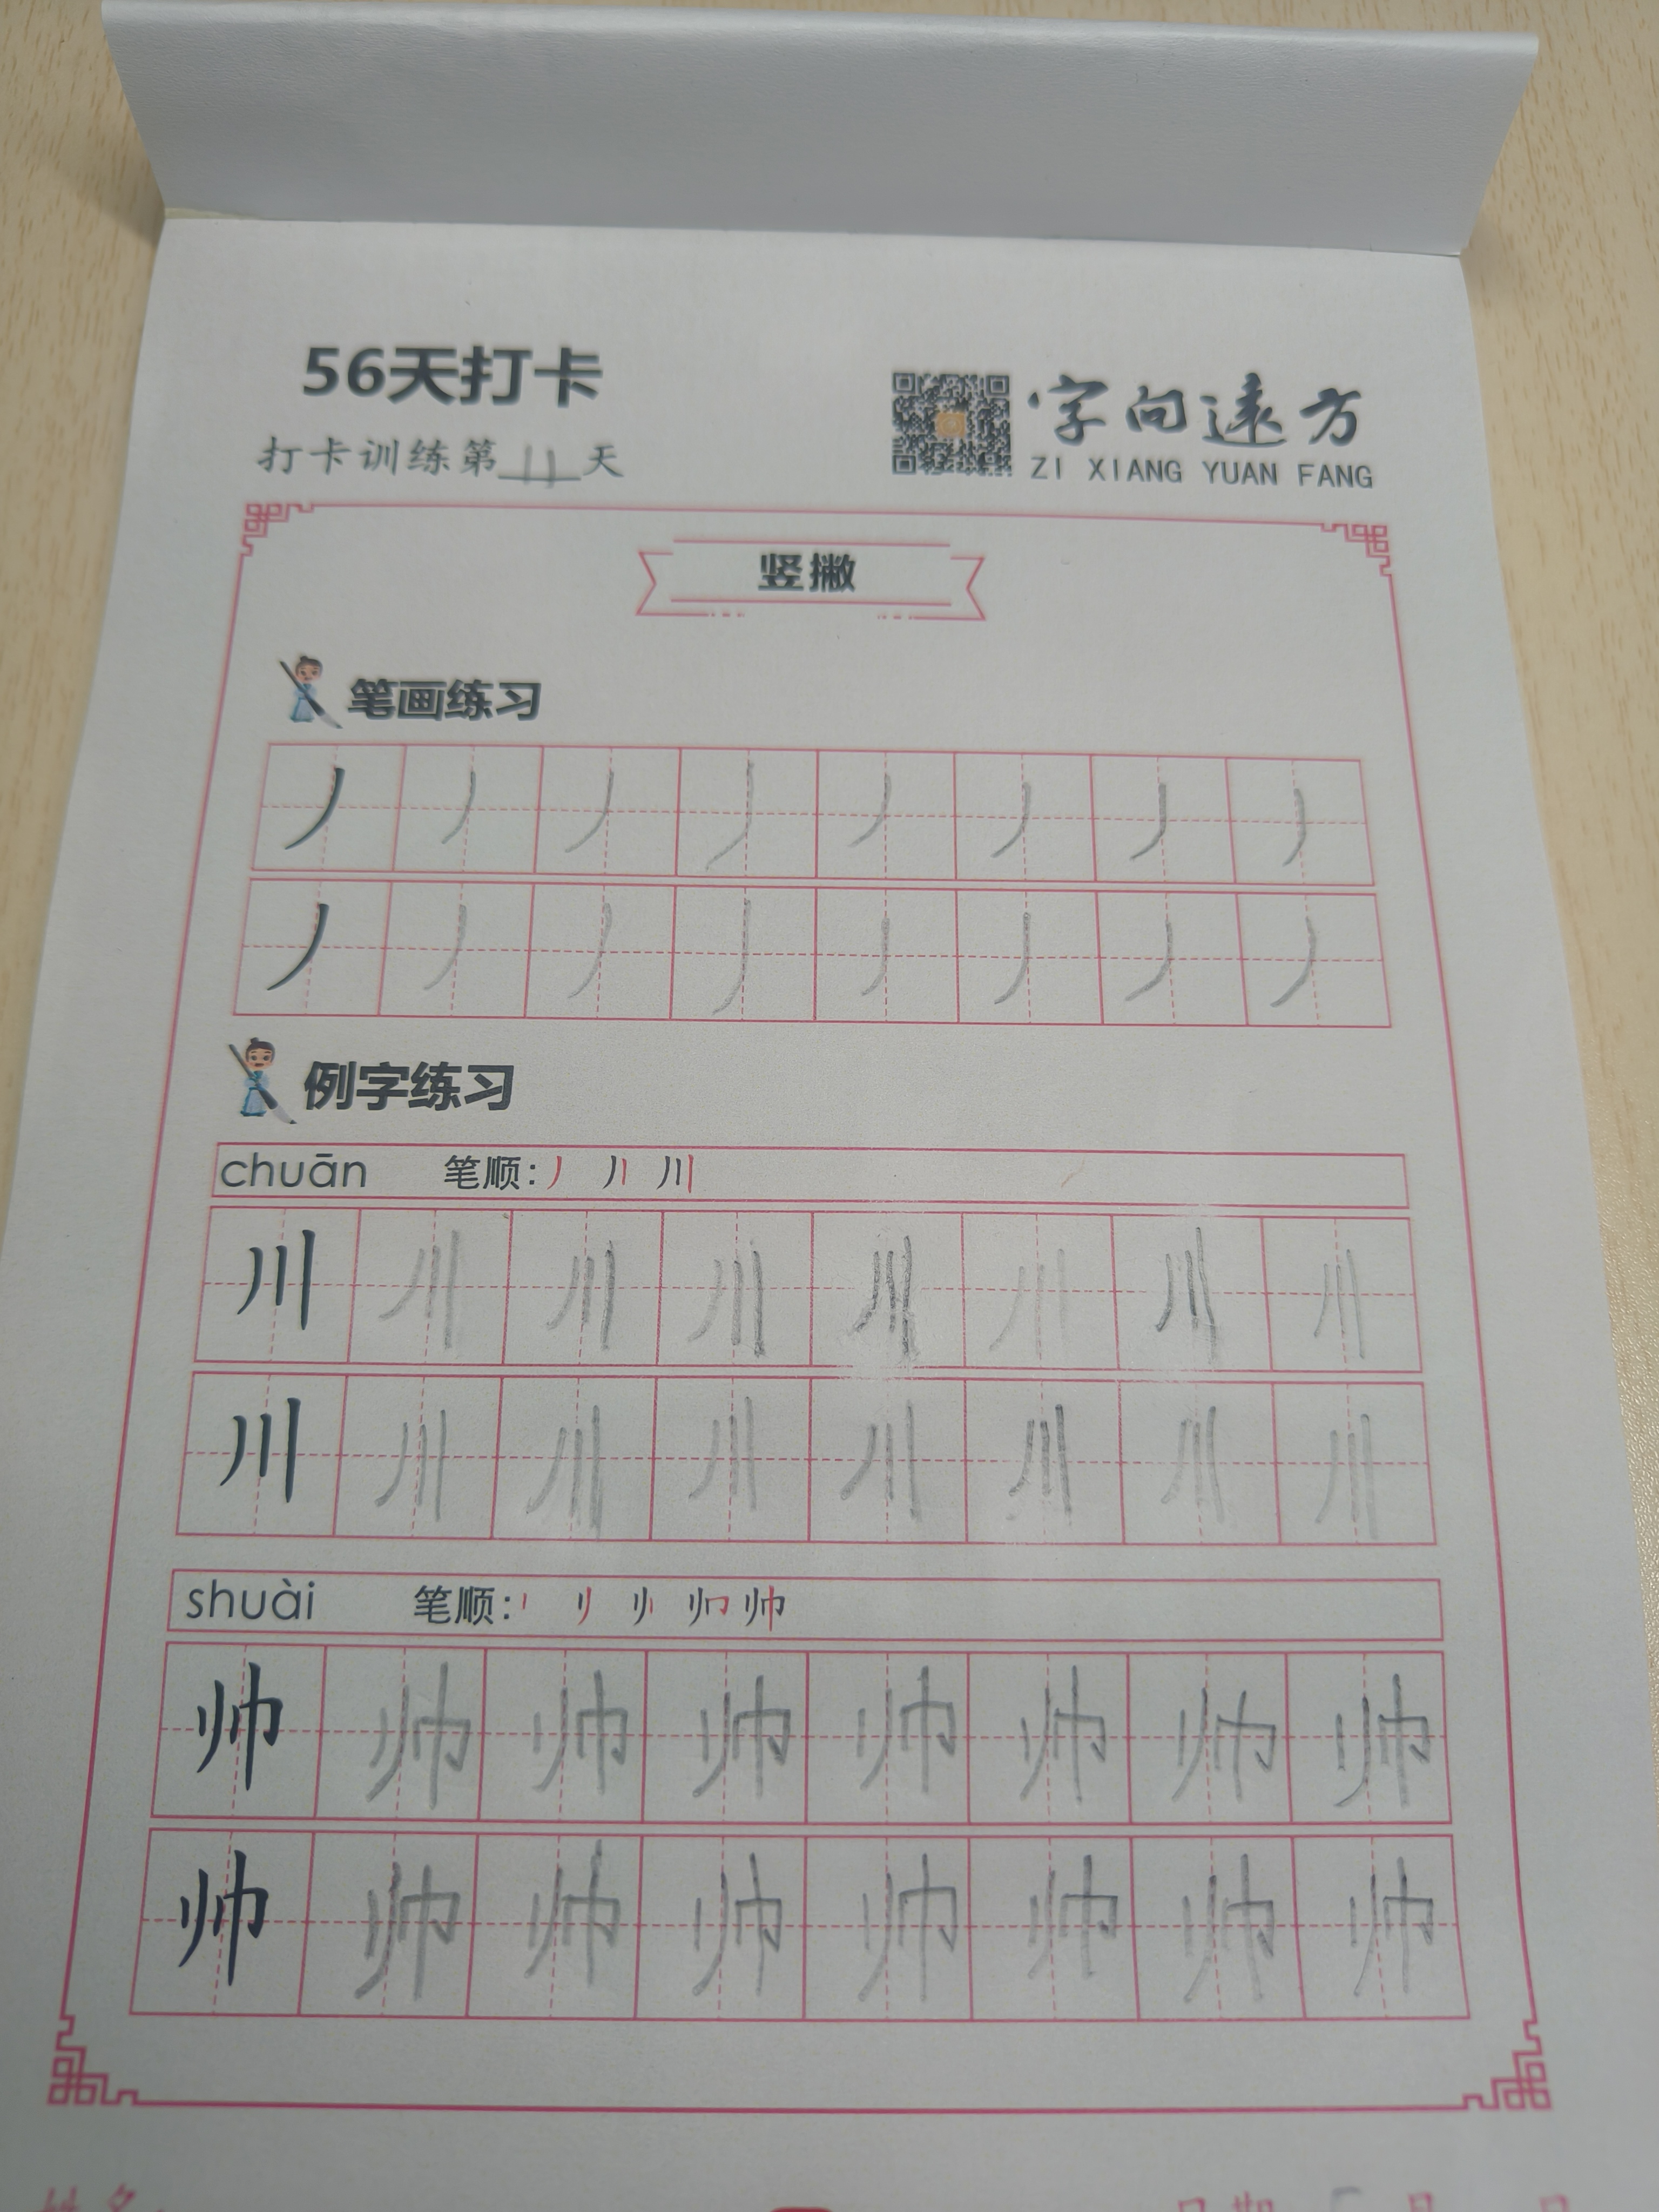 56天打卡
打卡训练第11天
字向远方
ZI XIANG YUAN FANG
竖撇
笔画练习
丿丿丿丿丿丿丿丿
丿丿丿丿丿丿丿丿
例字练习
chuān 笔顺: 丿 川
川川川川川川川川
川川川川川川川川
shuài 笔顺: 帅
帅帅帅帅帅帅帅帅
帅帅帅帅帅帅帅帅
姓名:
日期 5月 日